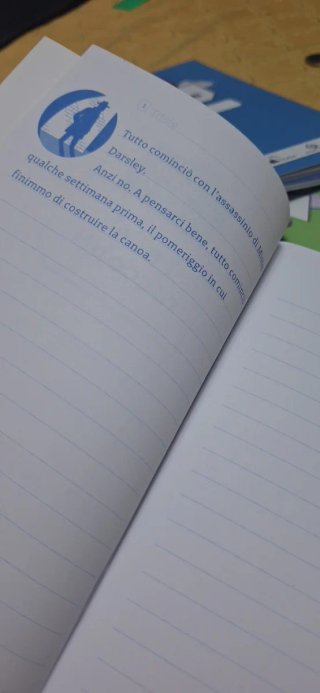 1
Tutto cominciò con l'assassinio di
Darsley.
Anzi no. A pensarci bene, tutto cominciò
qualche settimana prima, il pomeriggio in cui
finimmo di costruire la canoa.